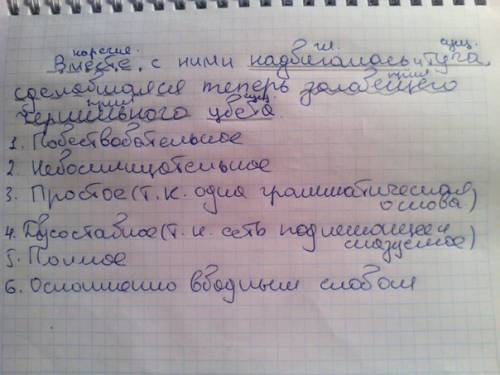 наречие. гл. сущ.
Вместе с ними надвигалась и туча
сделавшаяся теперь зловещего
прил. прил. сущ.
чернильного цвета.
1. Повествовательное
2. Невосклицательное
3. Простое (т.к. одна грамматическая
основа)
4. Двусоставное (т.к. есть подлежащее и
сказуемое)
5. Полное
6. Осложнено вводным словом